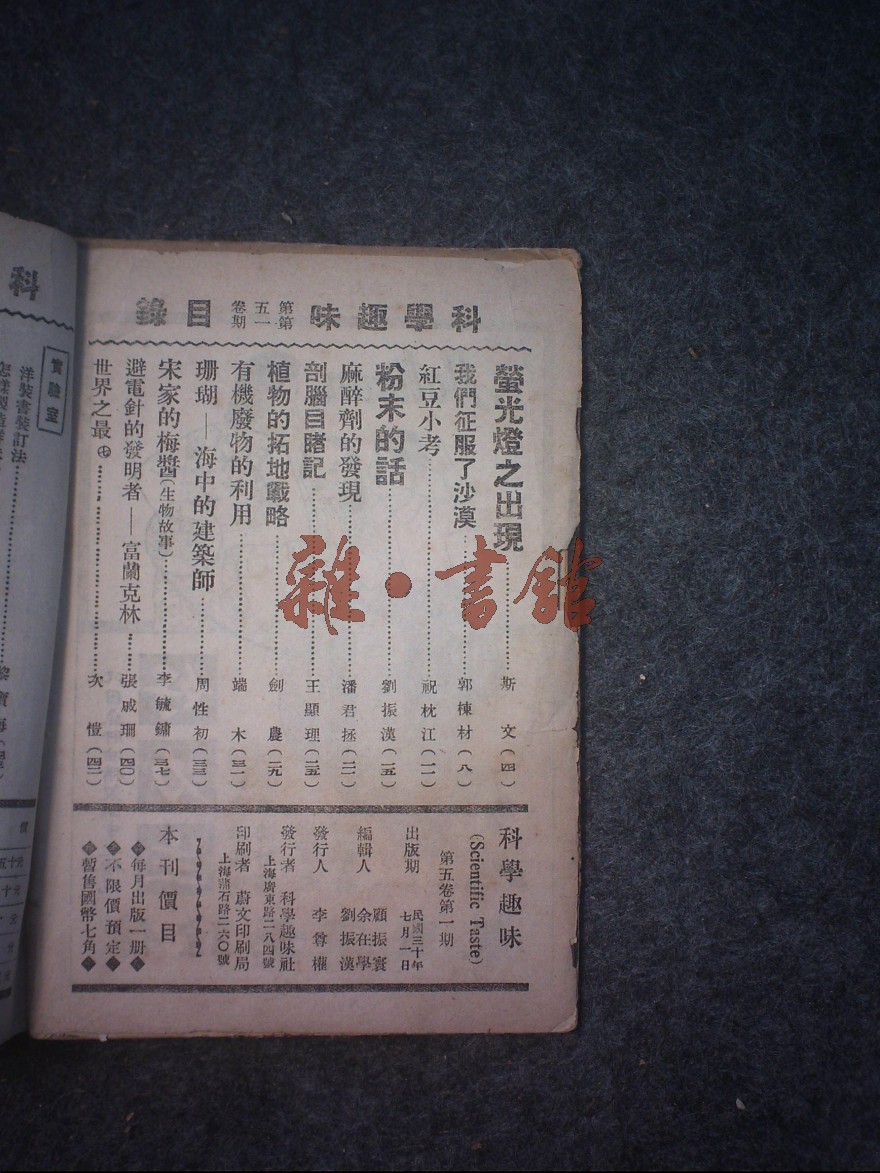 科學趣味 第五卷第一期 目錄
螢光燈之出現 斯文（四）
我們征服了沙漠 郭棟材（八）
紅豆小考 祝枕江（一一）
粉末的話 劉振漢（一五）
麻醉劑的發現 潘君拯（二一）
剖腦目睹記 王顯理（二五）
植物的拓地戰略 劍農（二九）
有機廢物的利用 端木（三一）
珊瑚——海中的建築師 周性初（三三）
宋家的梅醬（生物故事） 李毓鏞（三七）
避電針的發明者——富蘭克林 張戚珊（四〇）
世界之最㊆ 次愷（四二）
科學趣味
(Scientific Taste)
第五卷第一期
出版期 民國三十年七月一日
編輯人 顧振寰 余在學 劉振漢
發行人 李尊權
發行者 科學趣味社
上海廣東路二八四號
印刷者 蔚文印刷局
上海蒲石路二六〇號
本刊價目
每月出版一册
不限價預定
暫售國幣七角
科
實驗室
洋裝書裝訂法
雜·書館